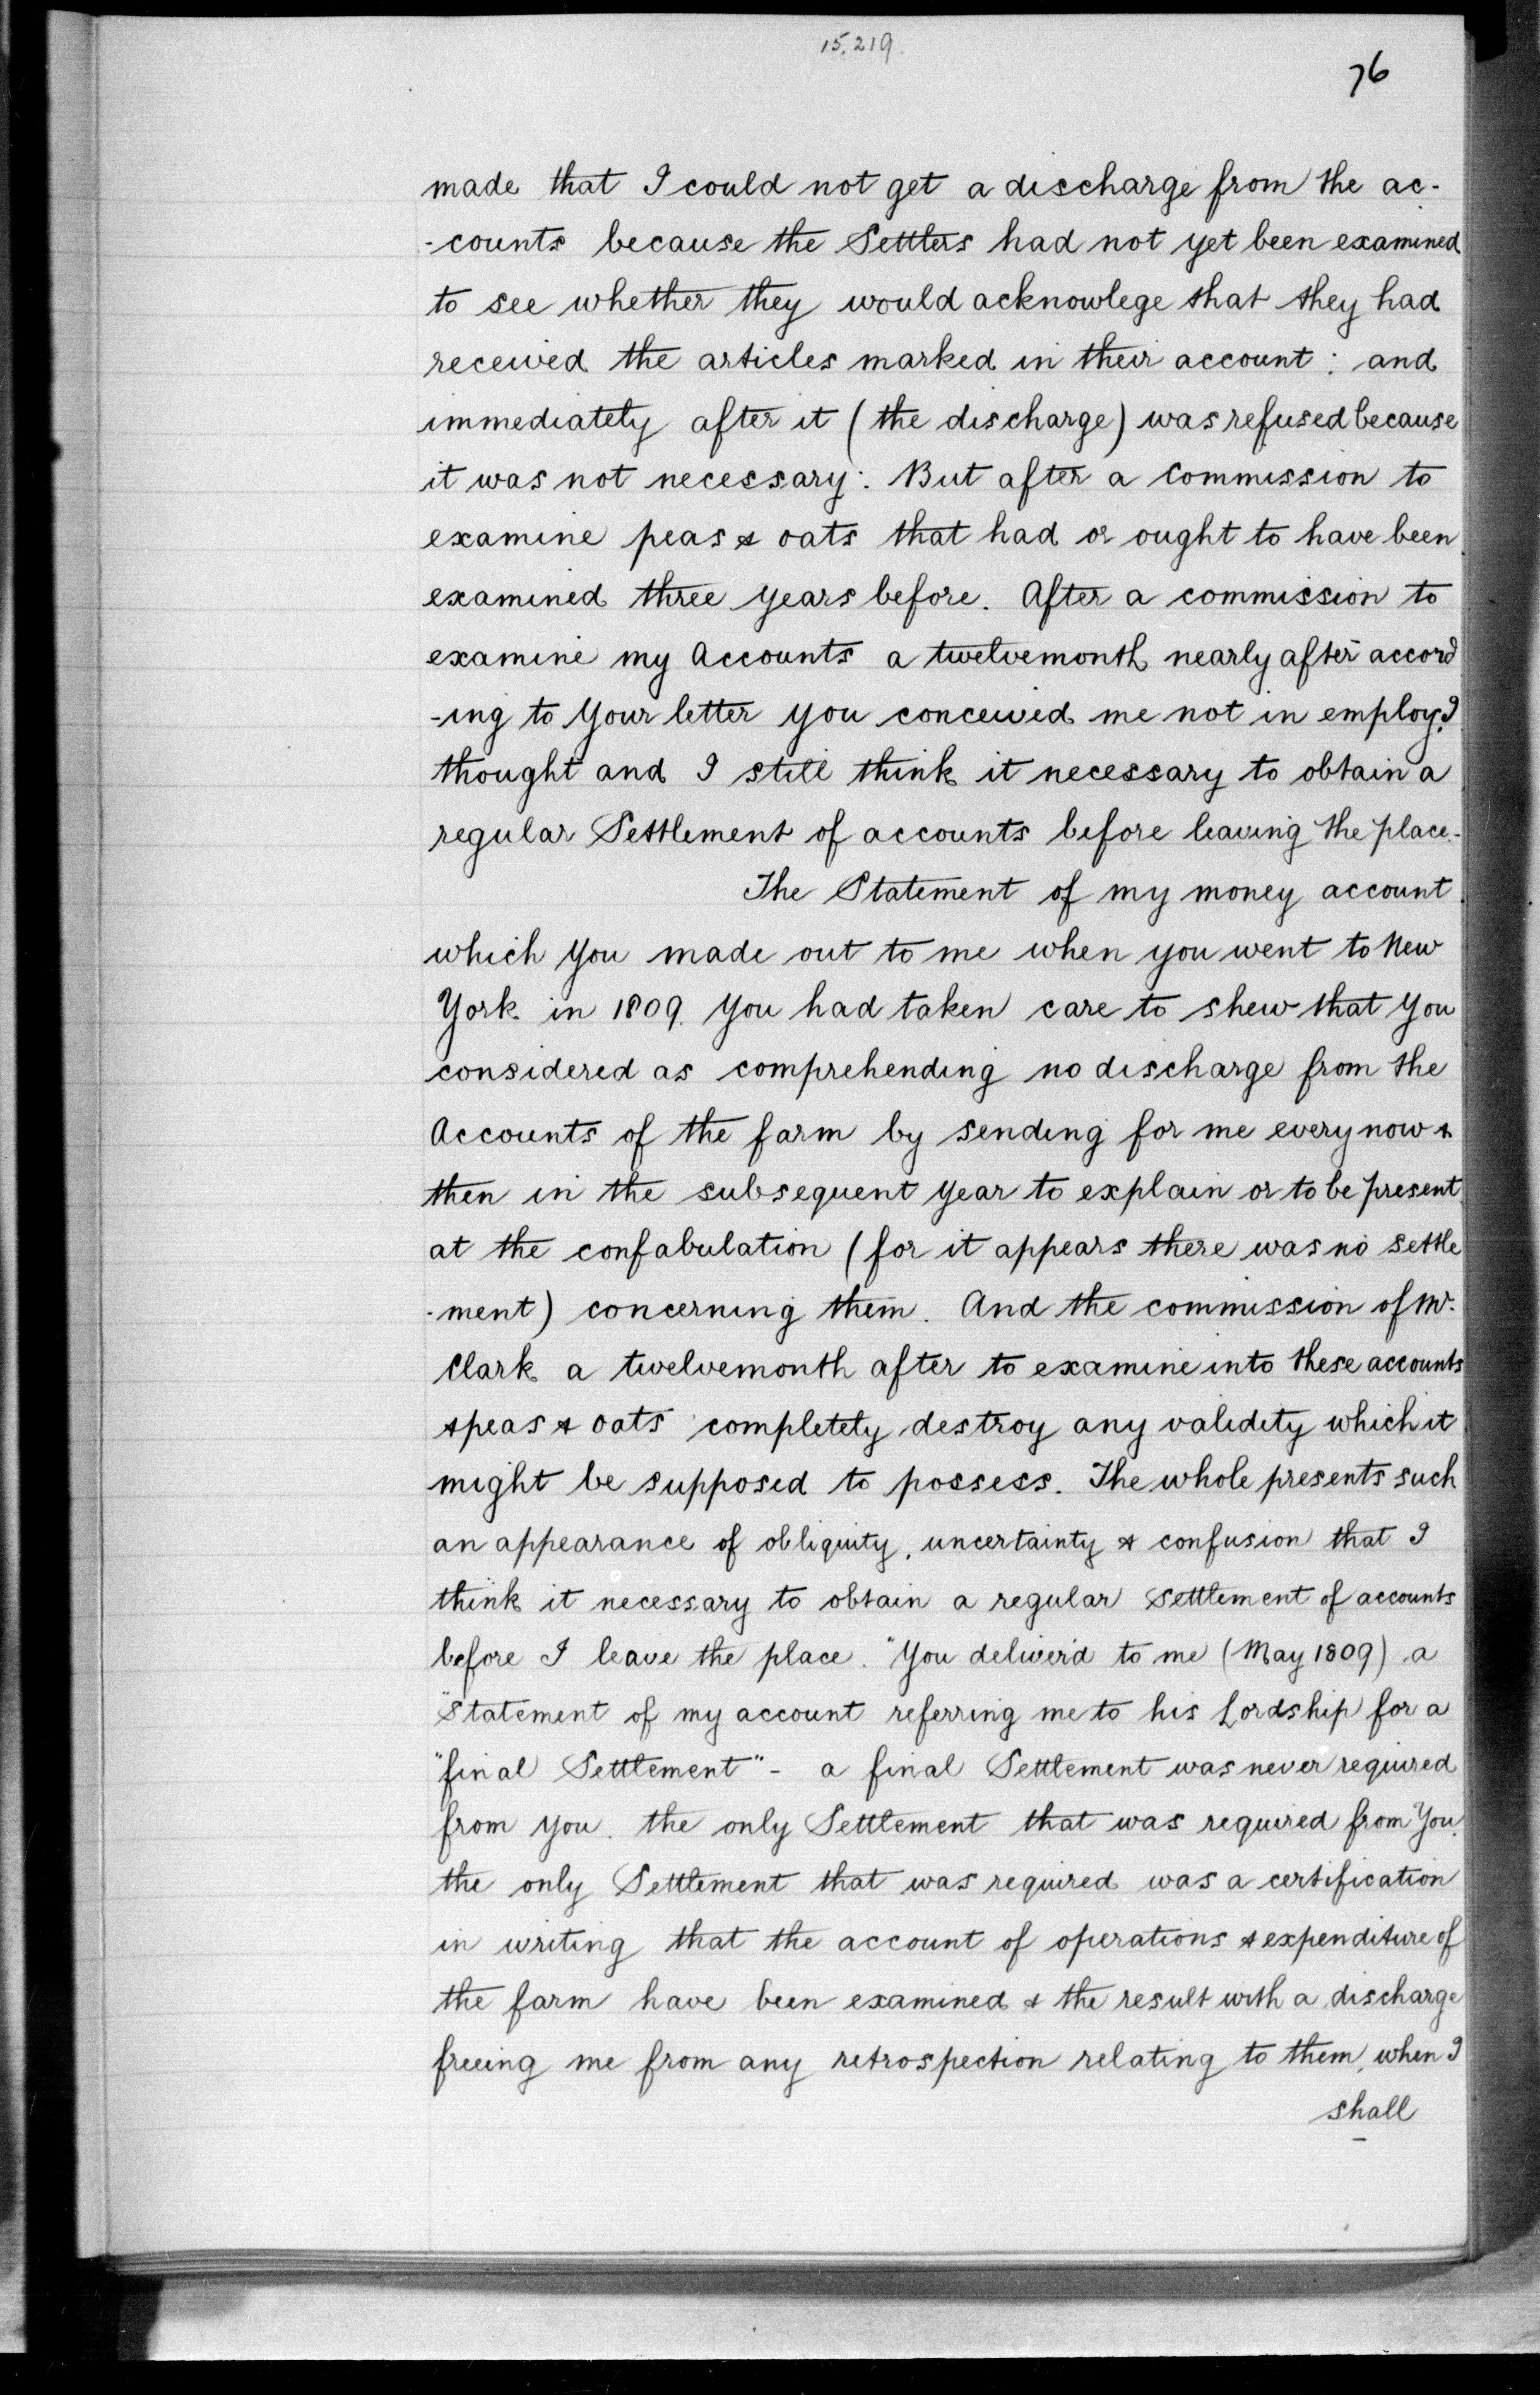 15,219.
76
made that I could not get a discharge from the ac-
-counts because the Settlers had not yet been examined
to see whether they would acknowlege that they had
received the articles marked in their account : and
immediately after it (the discharge) was refused because
it was not necessary : But after a Commission to
examine peas & oats that had or ought to have been
examined three years before. After a commission to
examine my Accounts a twelvemonth nearly after accord
-ing to Your letter you conceived me not in employ. I
thought and I still think it necessary to obtain a
regular Settlement of accounts before leaving the place.-
The Statement of my money account
which You made out to me when you went to New
York in 1809. You had taken care to shew that You
considered as comprehending no discharge from the
Accounts of the farm by sending for me every now &
then in the subsequent Year to explain or to be present
at the confabulation (for it appears there was no settle
-ment) concerning them. And the commission of Mr.
Clark a twelvemonth after to examine into these accounts
& peas & oats completely destroy any validity which it
might be supposed to possess. The whole presents such
an appearance of obliquity, uncertainty & confusion that I
think it necessary to obtain a regular Settlement of accounts
before I leave the place. "You deliver'd to me (May 1809) a
"Statement of my account referring me to his Lordship for a
"final Settlement" - a final Settlement was never required
from You. the only Settlement that was required from You.
the only Settlement that was required was a certification
in writing that the account of operations & expenditure of
the farm have been examined & the result with a discharge
freeing me from any retrospection relating to them, when I
shall